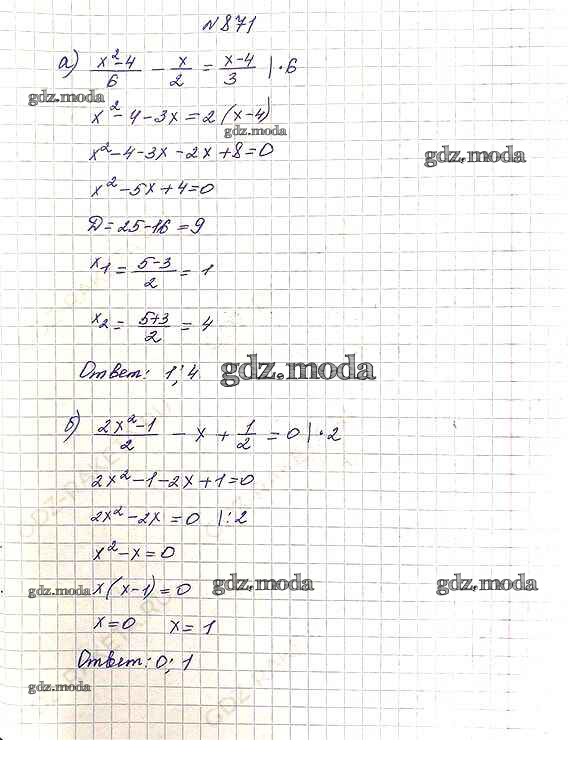 N 871
а) x²-4/6 - x/2 = x-4/3 |·6
gdz.moda
x²-4-3x=2(x-4)
gdz.moda
x²-4-3x-2x+8=0
gdz.moda
x²-5x+4=0
D=25-16=9
x₁ = 5-3/2 = 1
x₂ = 5+3/2 = 4
Ответ: 1; 4
gdz.moda
б) 2x²-1/2 - x + 1/2 = 0 |·2
2x²-1-2x+1=0
2x²-2x=0 |:2
x²-x=0
gdz.moda x(x-1)=0 gdz.moda gdz.moda
x=0 x=1
Ответ: 0; 1
gdz.moda